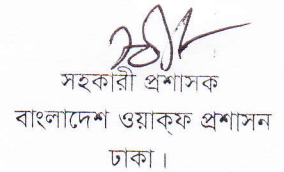 সহকারী প্রশাসক
বাংলাদেশ ওয়াক্‌ফ প্রশাসন
ঢাকা।